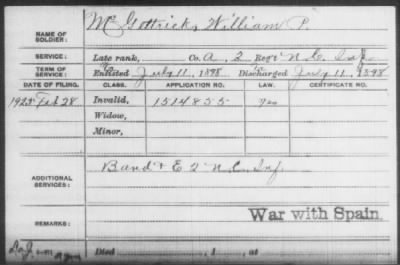 NAME OF SOLDIER: McGottrick, William P.
SERVICE: Late rank, Co. A, 2 Reg't N.C. Inf.
TERM OF SERVICE: Enlisted July 11, 1898 Discharged July 11, 1898
DATE OF FILING. CLASS. APPLICATION NO. LAW. CERTIFICATE NO.
1925 Feb 28 Invalid, 1514855
Widow,
Minor,
ADDITIONAL SERVICES: Band & E 2 N.C. Inf.
War with Spain.
REMARKS:
Died , 1 , at